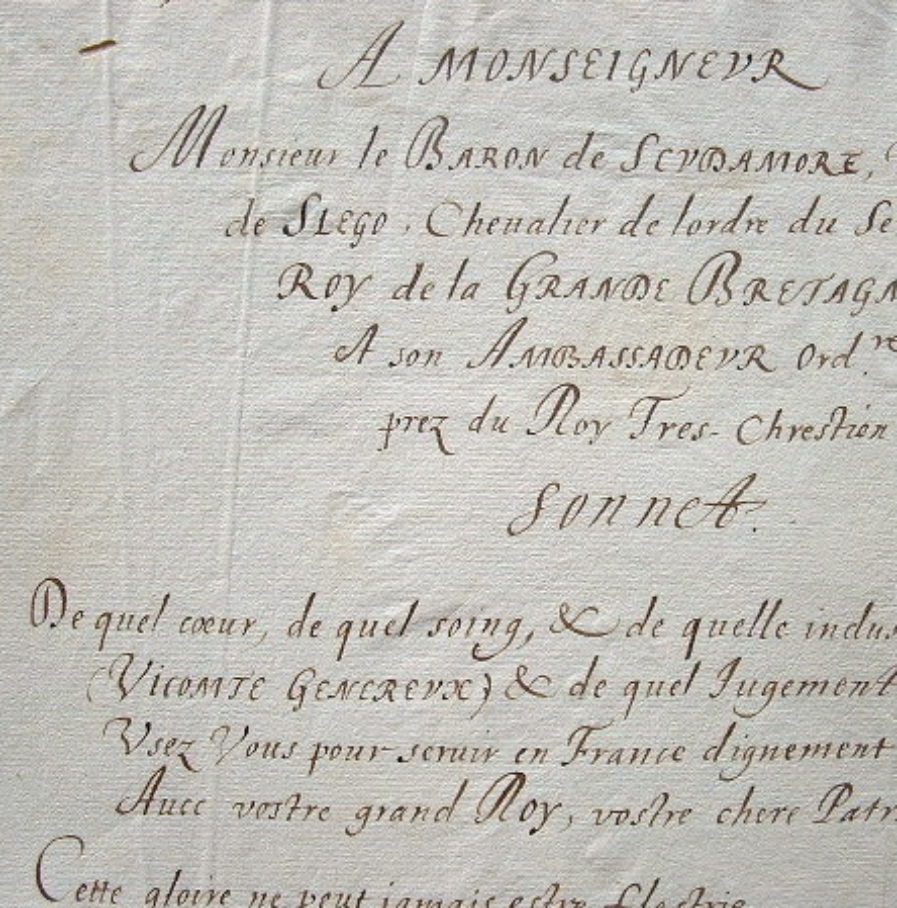 A MONSEIGNEVR
Monsieur le BARON de SCVDAMORE,
de SLEGO. Cheualier de lordre du Se
ROY de la GRANDE BRETAGN
A son AMBASSADEVR Ord.re
prez du Roy Tres-Chrestien
Sonnet.
De quel cœur, de quel soing, & de quelle indus
(VICOMTE GENEREVX) & de quel Jugement
Vsez Vous pour seruir en France dignement
Auec vostre grand Roy, vostre chere Patr
Cette gloire ne peut jamais estre